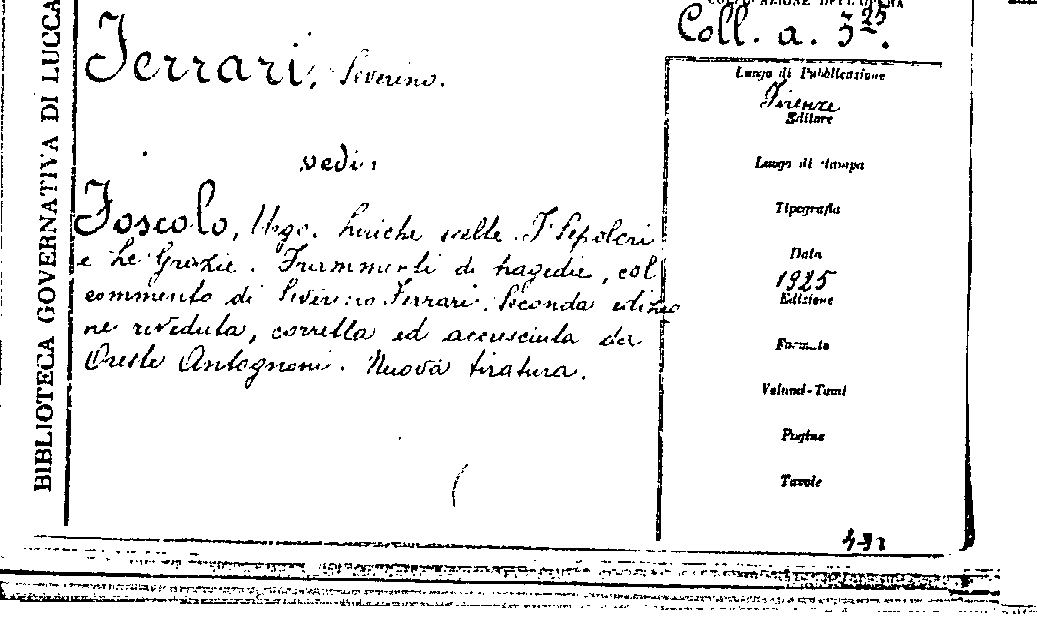 BIBLIOTECA GOVERNATIVA DI LUCCA
COLLOCAZIONE DELL'OPERA
Coll. a. 3 25.
Ferrari, Severino.
vedi:
Foscolo, Ugo. Liriche scelte. I Sepolcri
e Le Grazie. Frammenti di tragedie, col
commento di Severino Ferrari. Seconda edizio
ne riveduta, corretta ed accresciuta da
Oreste Antognoni. Nuova tiratura.
Luogo di Pubblicazione
Firenze
Editore
Luogo di stampa
Tipografia
Data
1925
Edizione
Formato
Volumi-Tomi
Pagine
Tavole